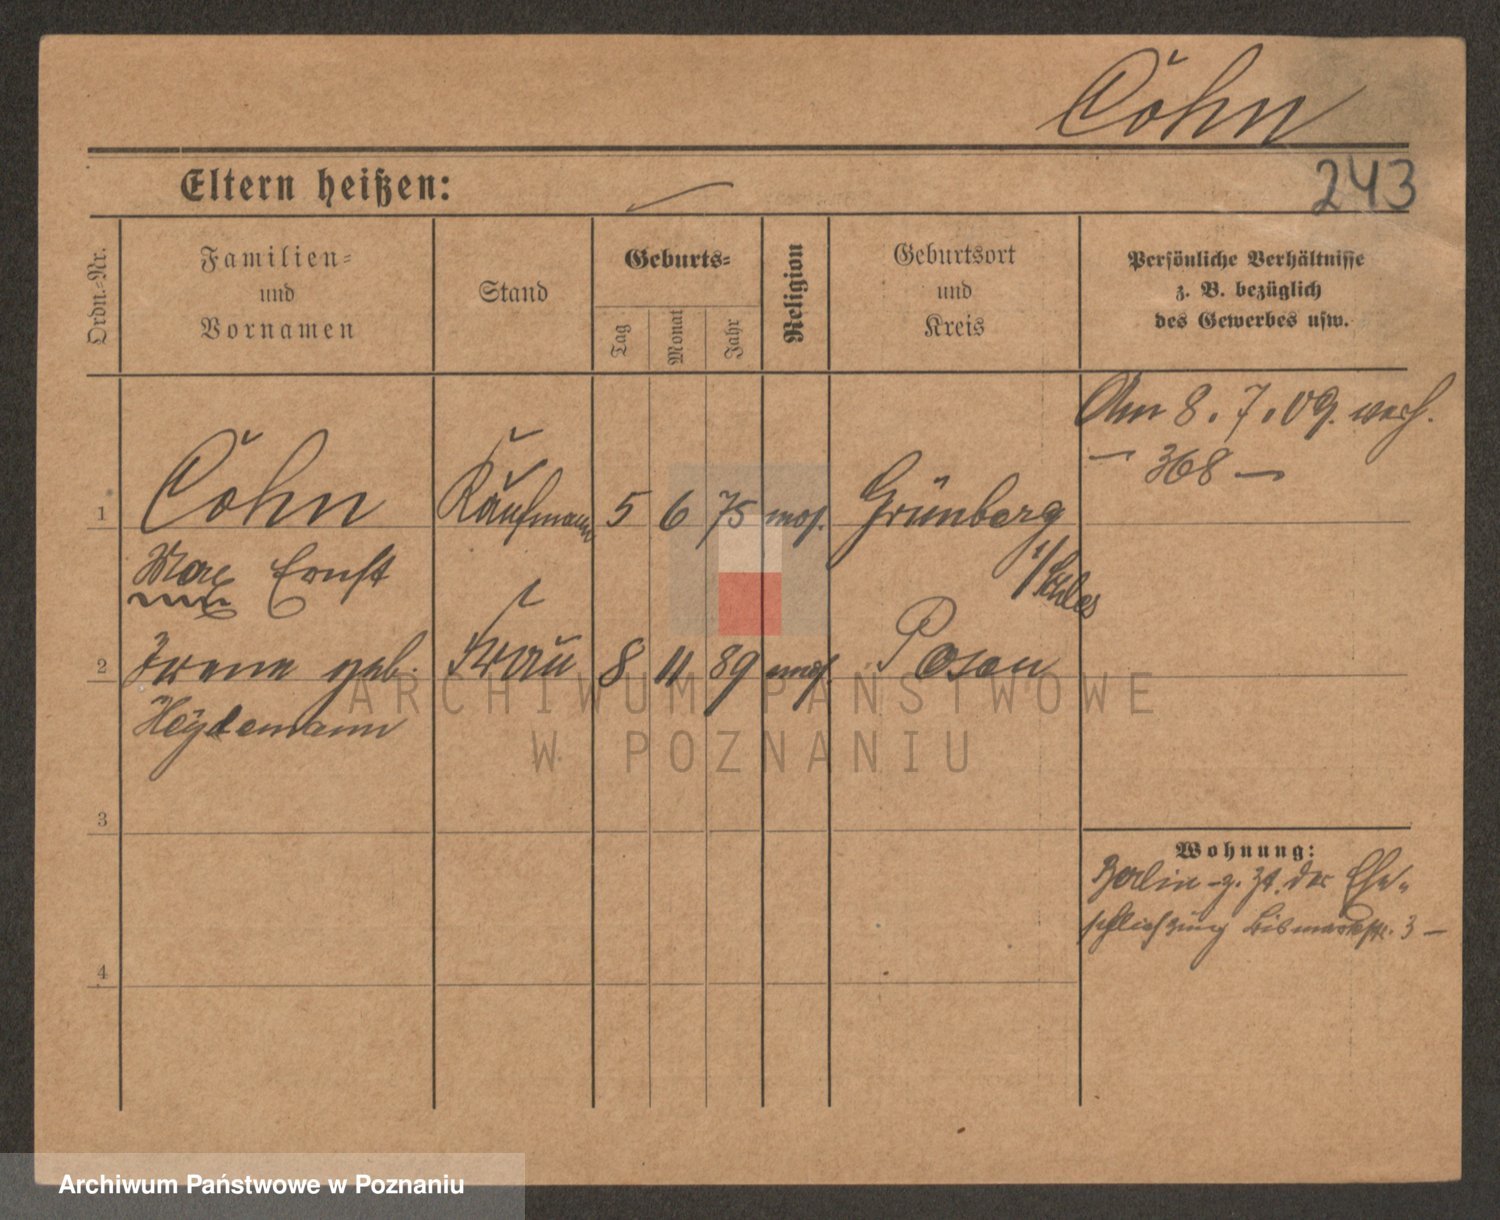 Cohn
243
Eltern heißen:
Ordn.-Nr.
Familien-
und
Vornamen
Stand
Geburts-
Tag
Monat
Jahr
Religion
Geburtsort
und
Kreis
Persönliche Verhältnisse
z. B. bezüglich
des Gewerbes usw.
Am 8.7.09. verh.
— 368 —
1 Cohn Kaufmann 5 6 75 mos. Grünberg
i/Schles
Max Ernst
2 Irene geb. Frau 8 11 89 mos. Posen
Heydemann
3
4
Wohnung:
Berlin - z. Zt. der Ehe-
schließung Bismarckstr. 3 —
ARCHIWUM PAŃSTWOWE
W POZNANIU
Archiwum Państwowe w Poznaniu